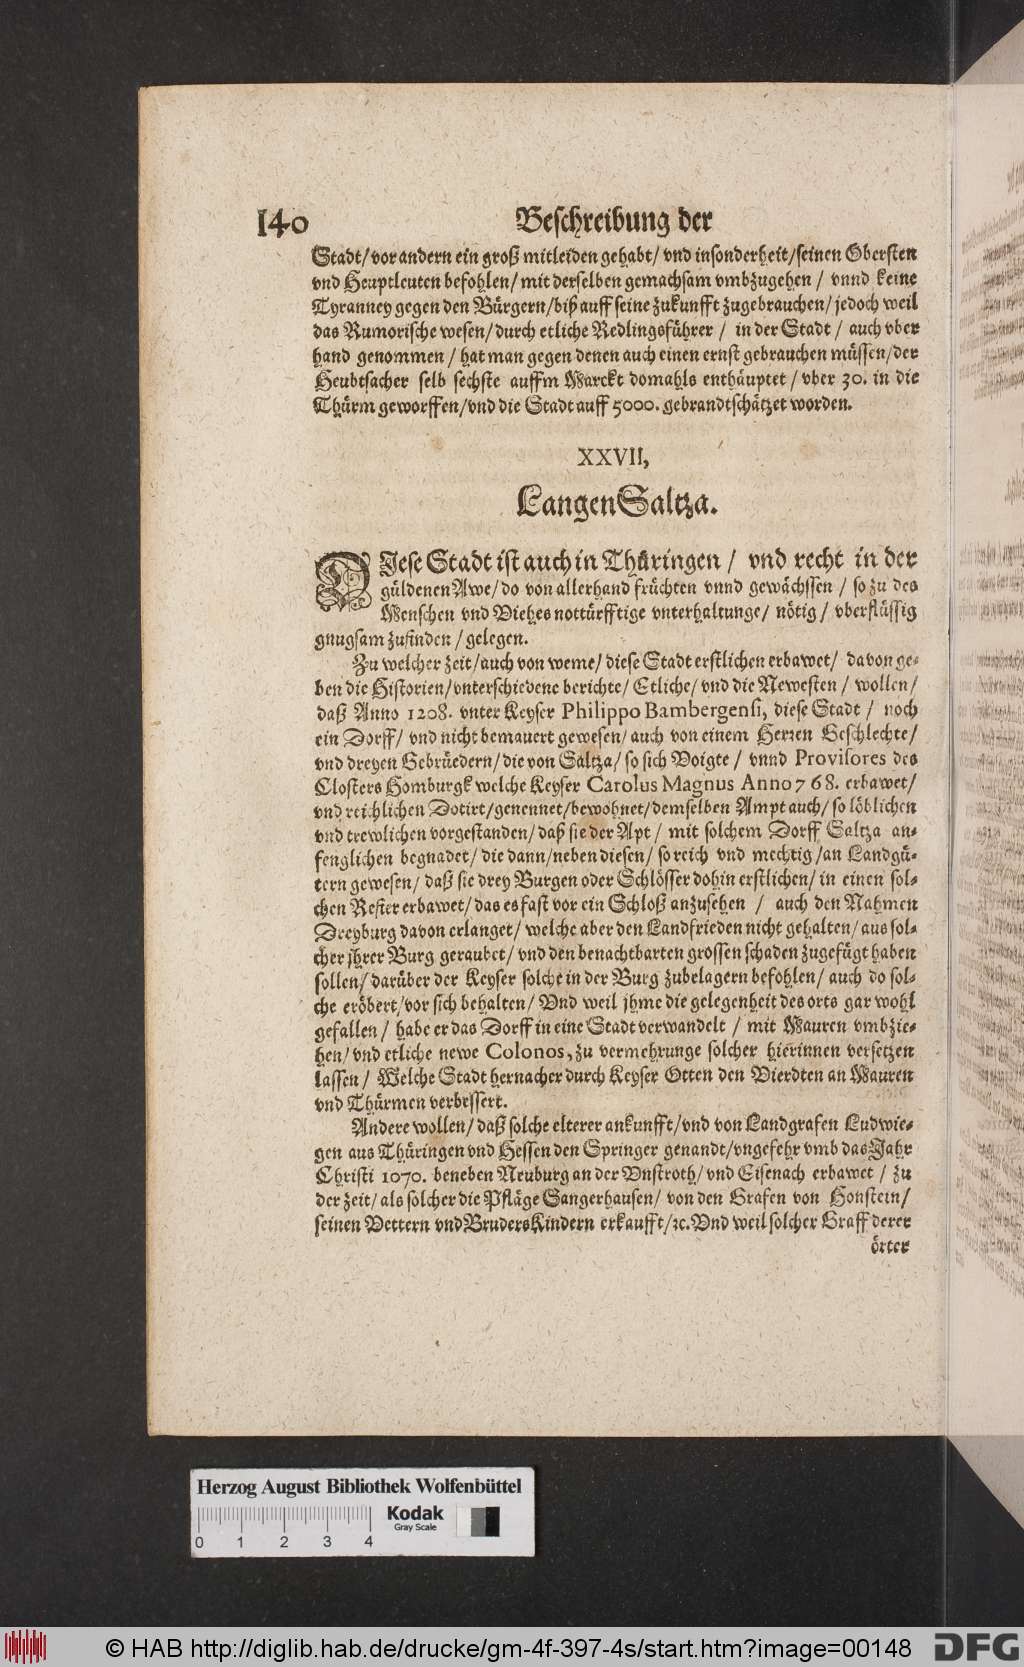 140 Beschreibung der
Stadt/ vor andern ein groß mitleiden gehabt/ vnd insonderheit/ seinen Obersten
vnd Heuptleuten befohlen/ mit derselben gemachsam vmbzugehen / vnnd keine
Tyranney gegen den Bürgern/ biß auff seine zukunfft zugebrauchen/ jedoch weil
das Rumorische wesen/ durch etliche Redlingsführer / in der Stadt / auch vber
hand genommen / hat man gegen denen auch einen ernst gebrauchen müssen/ der
Heubtsacher selb sechste auffm Marckt domahls enthäuptet / vber 30. in die
Thürm geworffen/ vnd die Stadt auff 5000. gebrandtschätzet worden.
XXVII,
LangenSaltza.
DIese Stadt ist auch in Thüringen / vnd recht in der
güldenen Awe/ do von allerhand früchten vnnd gewächssen / so zu des
Menschen vnd Viehes nottürfftige vnterhaltunge/ nötig / vberflüssig
gnugsam zufinden / gelegen.
Zu welcher zeit/ auch von weme/ diese Stadt erstlichen erbawet/ davon ge-
ben die Historien/ vnterschiedene berichte/ Etliche/ vnd die Newesten / wollen/
daß Anno 1208. vnter Keyser Philippo Bambergensi, diese Stadt / noch
ein Dorff/ vnd nicht bemauert gewesen/ auch von einem Herren Geschlechte/
vnd dreyen Gebrüedern/ die von Saltza/ so sich Voigte / vnnd Provisores des
Closters Homburgk welche Keyser Carolus Magnus Anno 768. erbawet/
vnd reichlichen Dotirt/ genennet/ bewohnet/ demselben Ampt auch/ so löblichen
vnd trewlichen vorgestanden/ daß sie der Apt / mit solchem Dorff Saltza an-
fenglichen begnadet/ die dann/ neben diesen/ so reich vnd mechtig / an Landgü-
tern gewesen/ daß sie drey Burgen oder Schlösser dohin erstlichen/ in einen sol-
chen Refier erbawet/ das es fast vor ein Schloß anzusehen / auch den Nahmen
Dreyburg davon erlanget/ welche aber den Landfrieden nicht gehalten/ aus sol-
cher jhrer Burg geraubet/ vnd den benachtbarten grossen schaden zugefügt haben
sollen/ darüber der Keyser solche in der Burg zubelagern befohlen/ auch do sol-
che eröbert/ vor sich behalten/ Vnd weil jhme die gelegenheit des orts gar wohl
gefallen / habe er das Dorff in eine Stadt verwandelt / mit Mauren vmbzie-
hen/ vnd etliche newe Colonos, zu vermehrunge solcher hierinnen versetzen
lassen / Welche Stadt hernacher durch Keyser Otten den Vierdten an Mauren
vnd Thürmen verbessert.
Andere wollen/ daß solche elterer ankunfft/ vnd von Landgrafen Ludwie-
gen aus Thüringen vnd Hessen den Springer genandt/ vngefehr vmb das Jahr
Christi 1070. beneben Neuburg an der Vnstroth/ vnd Eisenach erbawet / zu
der zeit/ als solcher die Pfläge Sangerhausen/ von den Grafen von Honstein/
seinen Vettern vnd Bruders Kindern erkaufft/ ꝛc. Vnd weil solcher Graff derer
örter
Herzog August Bibliothek Wolfenbüttel
0 1 2 3 4
Kodak
Gray Scale
© HAB http://diglib.hab.de/drucke/gm-4f-397-4s/start.htm?image=00148
DFG